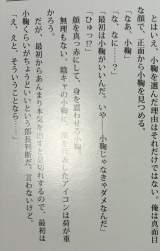 とはいえ、小鞠を選んだ理由はそれだけではない。俺は真面
な顔で、正面から小鞠を見つめる。
「なあ、小鞠」
「な、なに……?」
「最初は小鞠がいいんだ。いや、小鞠じゃなきゃダメなんだ」
「ひゅっ!?」
顔を真っ赤にして、身を震わせる小鞠。
無理もない。陰キャの小鞠に
アイコンは荷が重
かろう。
だが、最初からあんまり
れするので、最初は
小鞠くらいがちょうどいいという部長判断だ。言わないけど。
「え、えと、そういうことなら……」